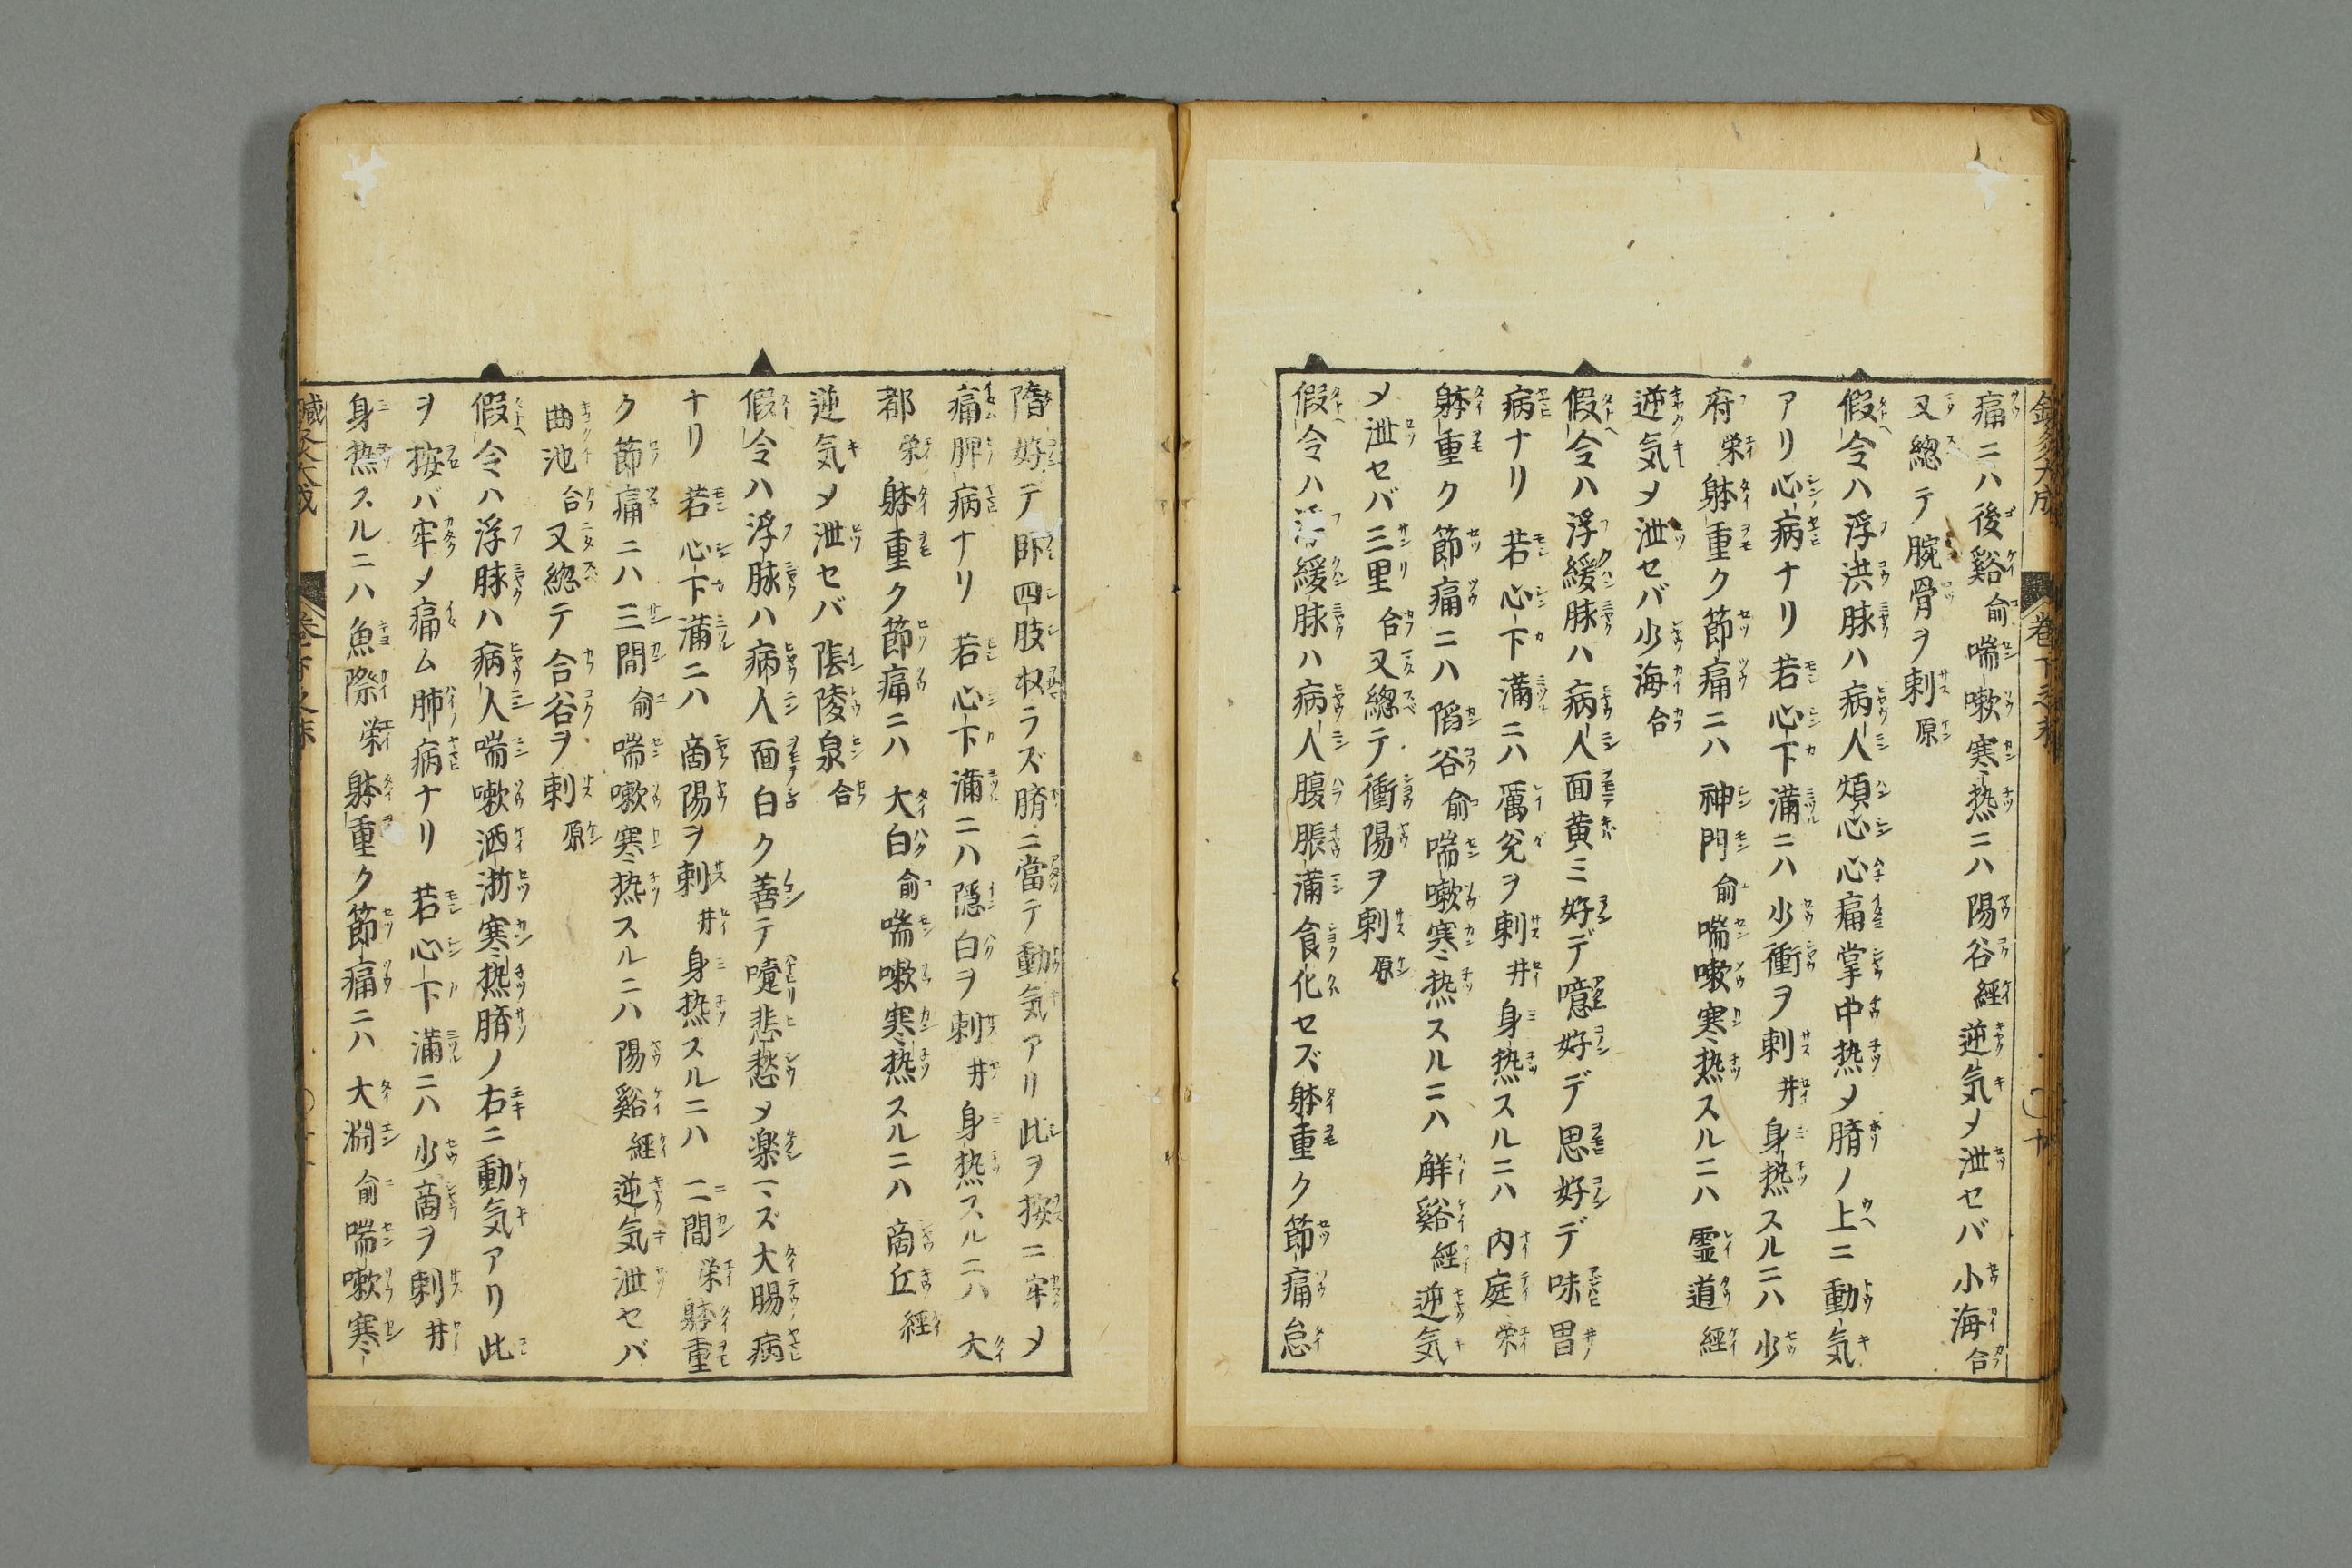 鍼灸大成 巻下之末
痛ニハ後谿 俞 喘嗽寒热ニハ 陽谷 經 逆気メ泄セバ 小海 合
又總テ腕骨ヲ刺 原
假令ハ浮洪脉ハ病人煩心心痛掌中热メ臍ノ上ニ動気
アリ心病ナリ 若心下満ニハ 少衝ヲ刺 井 身热スルニハ 少
府 栄 躰重ク節痛ニハ 神門 俞 喘嗽寒热スルニハ 霊道 經
逆気メ泄セバ少海 合
假令ハ浮緩脉ハ病人面黄ミ好デ噫好デ思好デ味胃
病ナリ 若心下満ニハ 厲兌ヲ刺 井 身热スルニハ 内庭 栄
躰重ク節痛ニハ 陷谷 俞 喘嗽寒热スルニハ 解谿 經 逆気
メ泄セバ三里 合 又總テ衝陽ヲ刺 原
假令ハ浮緩脉ハ病人腹脹満食化セズ躰重ク節痛怠
隋好デ卧四肢収ラズ臍ニ當テ動気アリ此ヲ按ニ牢メ
痛脾病ナリ 若心下満ニハ 隠白ヲ刺 井 身热スルニハ 大
都 栄 躰重ク節痛ニハ 大白 俞 喘嗽寒热スルニハ 商丘 經
逆気メ泄セバ 陰陵泉 合
假令ハ浮脉ハ病人面白ク善テ嚔悲愁メ楽マズ大腸病
ナリ 若心下満ニハ 商陽ヲ刺 井 身热スルニハ 二間 栄 躰重
ク節痛ニハ 三間 俞 喘嗽寒热スルニハ 陽谿 經 逆気泄セバ
曲池 合 又總テ合谷ヲ刺 原
假令ハ浮脉ハ病人喘嗽洒淅寒热臍ノ右ニ動気アリ此
ヲ按バ牢メ痛ム肺病ナリ 若心下満ニハ 少商ヲ刺 井
身热スルニハ 魚際 栄 躰重ク節痛ニハ 大渕 俞 喘嗽寒
鍼灸大成 巻下之末